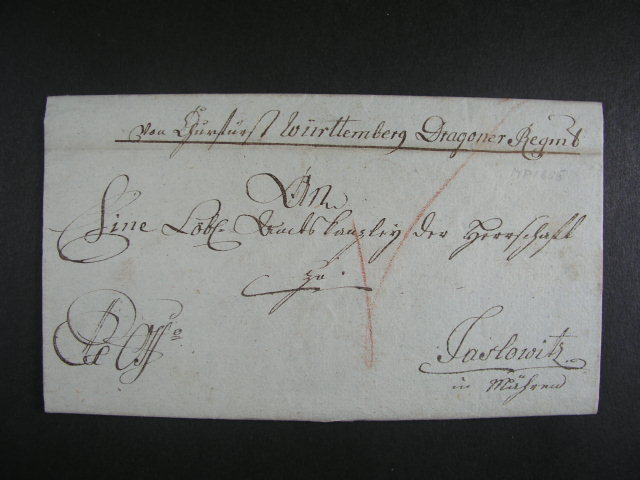 Von Churfürst Württemberg Dragoner Regmt
An
Eine Löbl. Amtskanzley der Herrschaft
zu
Ex Offo
Jaslowitz
in Mähren